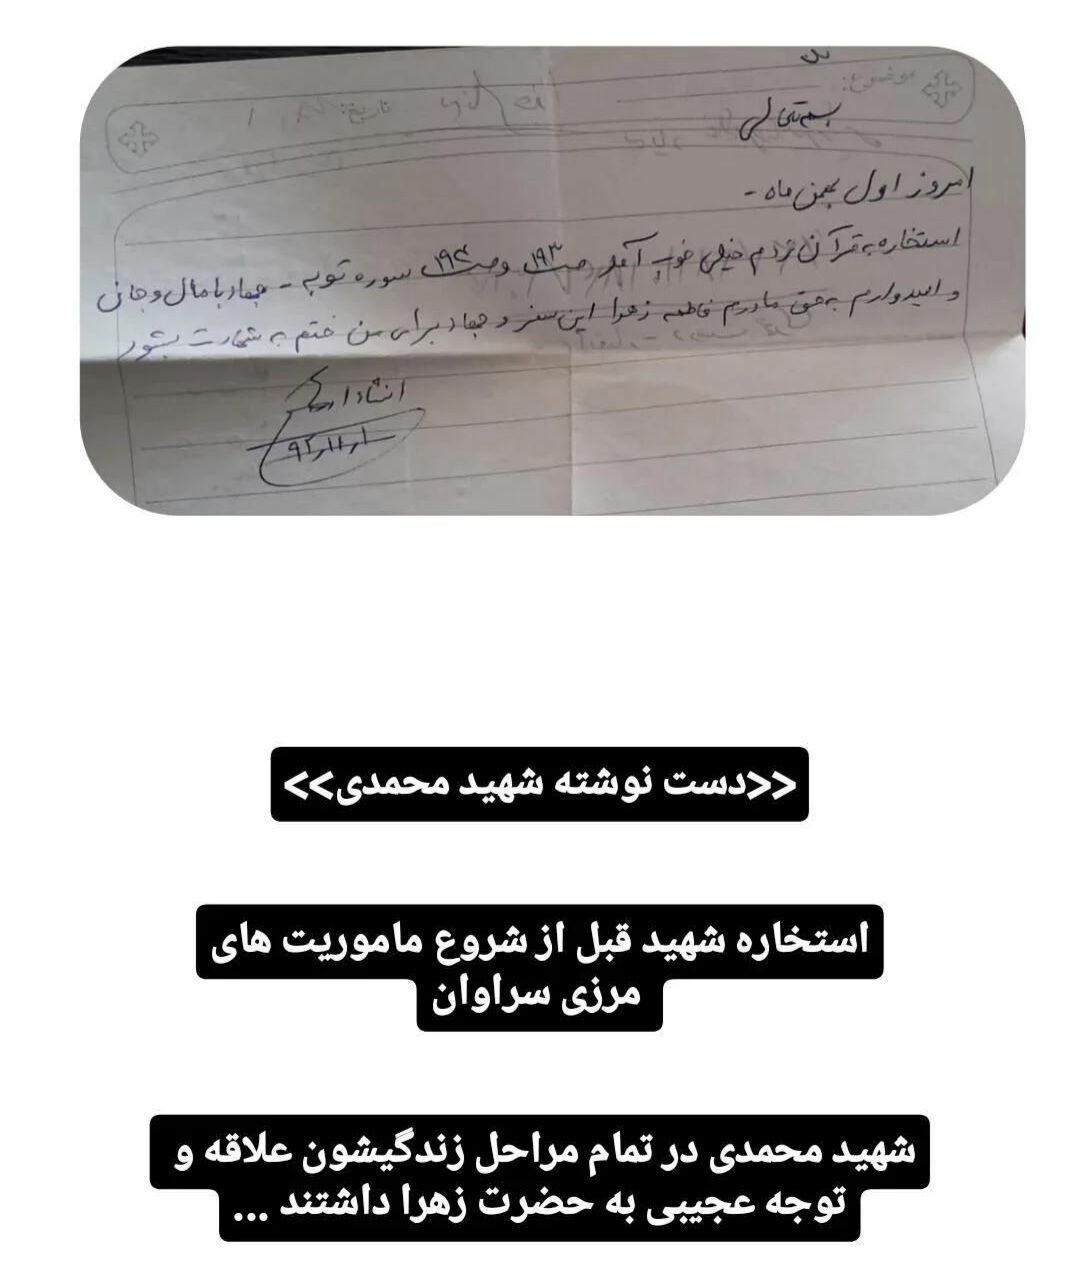 بسمه تعالی
امروز اول بهمن ماه -
استخاره به قرآن کردم خیلی خوب آمد ص ۱۹۳ و ص ۱۹۴ سوره توبه - جهاد با مال و جانی
و امیدوارم به حق مادرم فاطمه زهرا این سفر و جهاد برای من ختم به شهادت بشود
انشاءا...
۹۲٫۱۱٫۱
<<دست نوشته شهید محمدی>>
استخاره شهید قبل از شروع ماموریت های
مرزی سراوان
شهید محمدی در تمام مراحل زندگیشون علاقه و
توجه عجیبی به حضرت زهرا داشتند ...